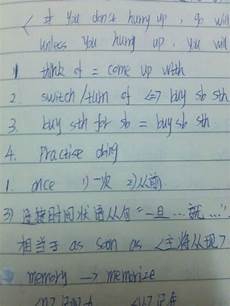 If you don't hurry up, 
unless you hurry up, you will
1 think of = come up with
2. switch/turn of <=> buy sb sth
3. buy sth for sb = buy sb sth
4. Practise doing
1 once 1)一次 2)从前
3)连接时间状语从句 "一旦...就..."
相当于 as soon as <主将从现>
memory → memorize